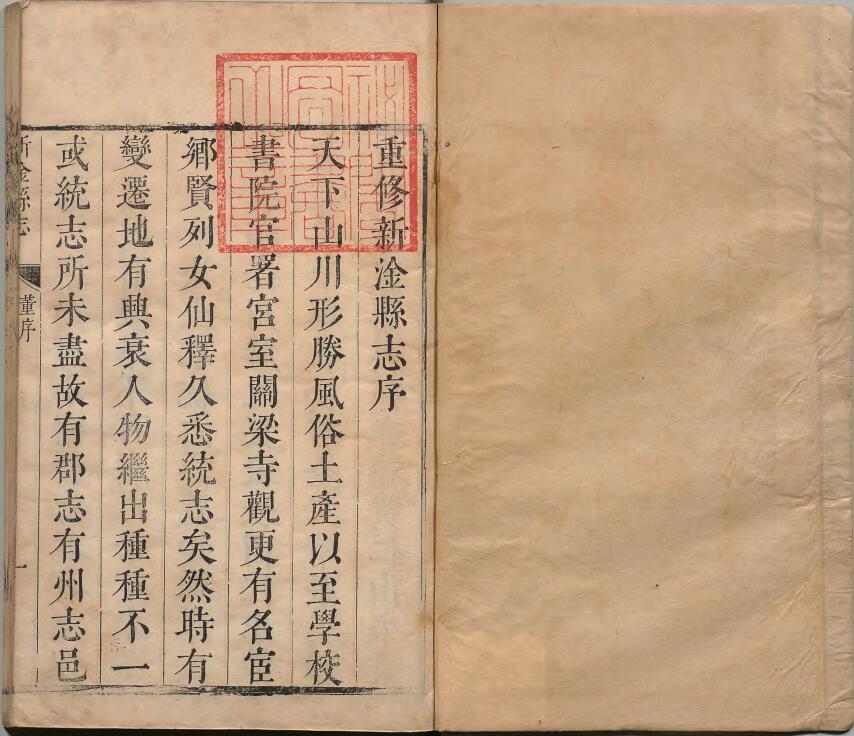 重修新淦縣志序
天下山川形勝風俗土產以至學校
書院官署宮室關梁寺觀更有名宦
鄉賢列女仙釋久悉統志矣然時有
變遷地有興衰人物繼出種種不一
或統志所未盡故有郡志有州志邑
新淦縣志
董序
一